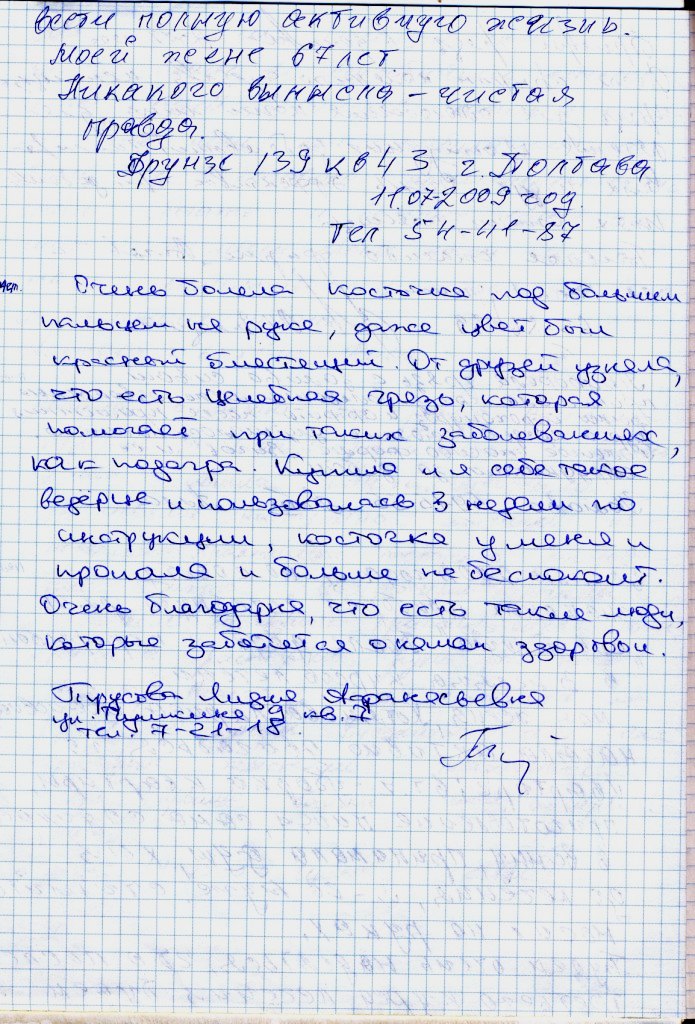 вести полную активную жизнь.
Моей жене 67 лет.
Никакого вымысла – чистая
правда.
Фрунзе 139 кв 43 г. Полтава
11.07.2009 год.
Тел 54-41-87
Очень болела косточка под большим
пальцем на руке, даже цвет был
красный блестящий. От друзей узнала,
что есть целебная грязь, которая
помогает при таких заболеваниях,
как подагра. Купила и я себе такое
ведерце и пользовалась 3 недели по
инструкции, косточка у меня и
пропала и больше не беспокоит.
Очень благодарна, что есть такие люди,
которые заботятся о нашем здоровьи.
Лидия Афанасьевна
ул. Пушкина 9 кв. 7
тел. 7-21-18